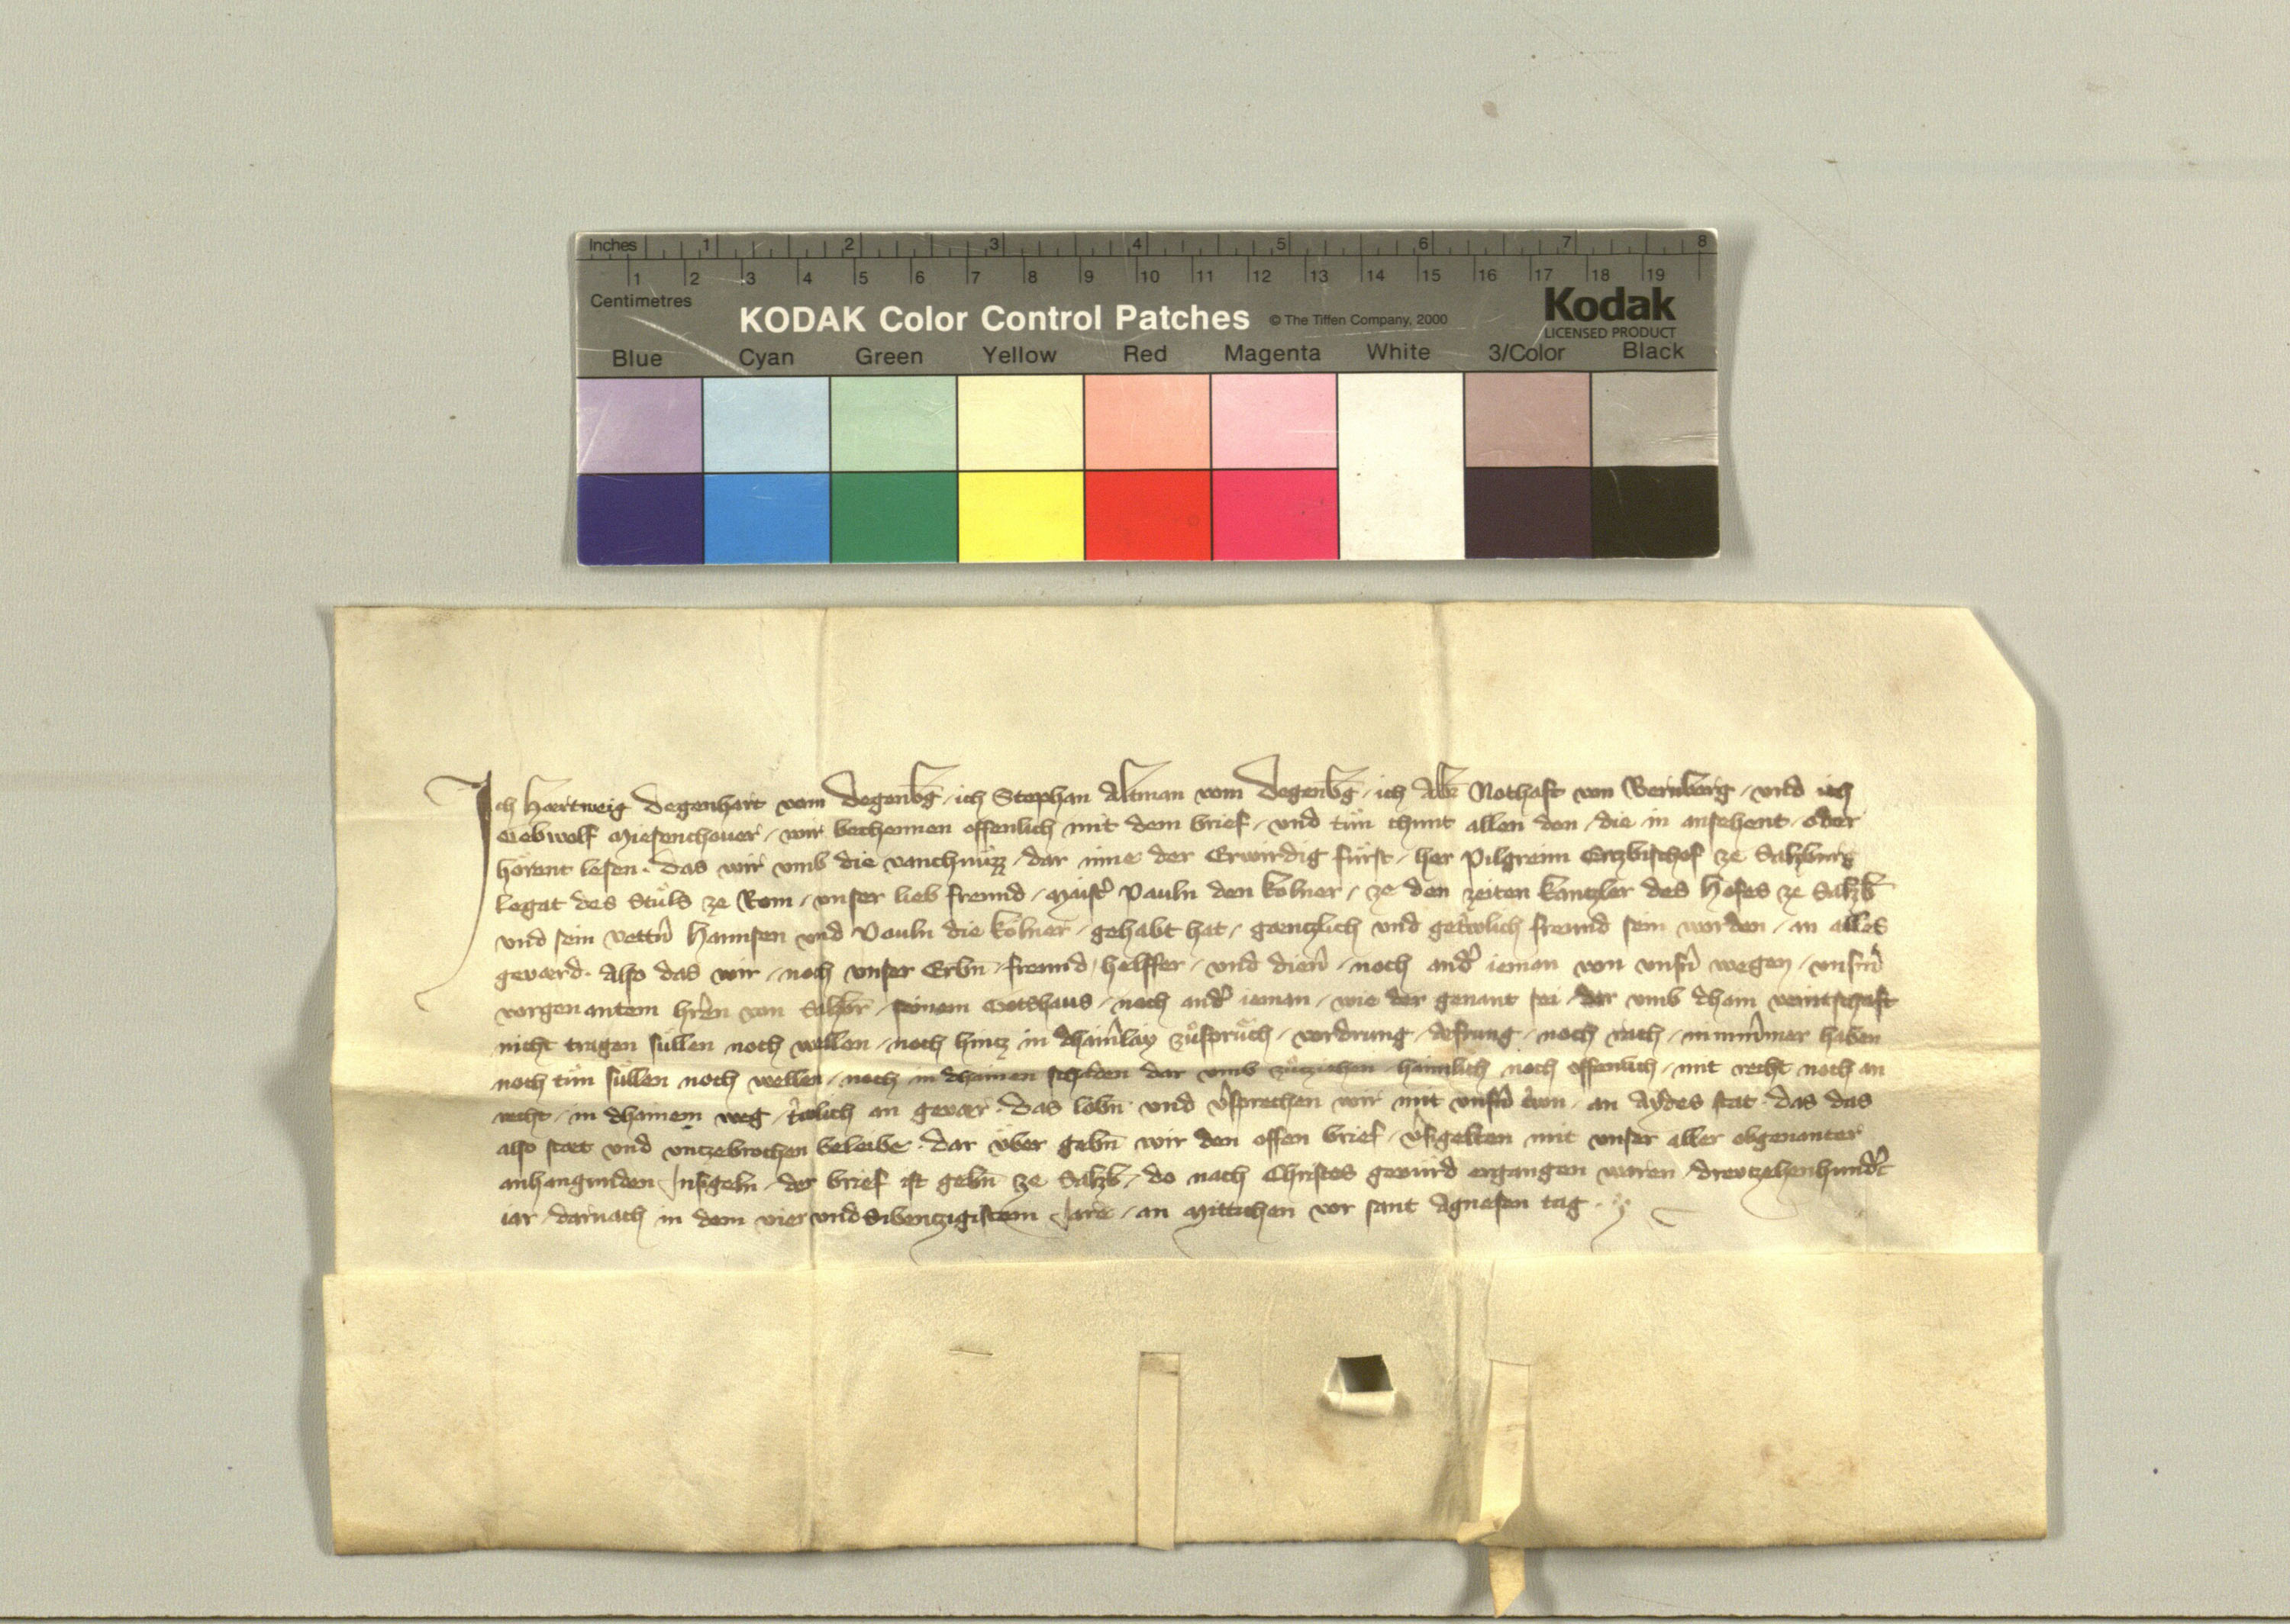 Inches 1 2 3 4 5 6 7 8
1 2 3 4 5 6 7 8 9 10 11 12 13 14 15 16 17 18 19
Centimetres
KODAK Color Control Patches © The Tiffen Company, 2000 Kodak
LICENSED PRODUCT
Blue Cyan Green Yellow Red Magenta White 3/Color Black
Ich Hærtweig Degenhart vom Degenbḡ / ich Stephan Altman vom Degenbḡ / ich Albr̄ Nothaft von Wernberg / und ich
Gebwolf / wir bechennen offenlich mit dem brief / und tůn chunt allen den / die in ansehent / oder
hörent lesen · das wir umb die vanchnüzz / dar inne der Erwirdig fürst / her Pilgreim Ertzbischof ze Saltzburg
Legat des Stůls ze Rom / unser lieb freund / Maist̾ Pauln den Kölner / ze den zeiten Kantzler des Hofes ze Saltzb̄
und sein vett̾n Hannsen und Pauln die Kölner / gehabt hat / gæntzlich und getr̾wlich freund sein worden / an alles
geværd · Also das wir / noch unser Erbn̄ / freund / helffer / und dien̾ / noch and̾ ieman von uns̾n wegen / uns̾m
vorgenantem hr̾en von Saltzbr̄ / seinem Gotshaus / noch and̾ ieman / wie der genant sei / dar umb dhain veintschaft
nicht tragen süllen noch wellen / noch hintz in dhain̾lay zůsprüch / vordrung / / noch rach / nimm̾mer haben
noch tůn süllen noch wellen / noch in dhainen scheden dar umb zůtziehen haimlich noch offenlich / mit recht noch an
recht / in dhainem weg / tr̾wlich an gevær · Das lobn̄ und v̾sprechen wir mit uns̾n tr̾wn / an Aydes stat · das das
also stæt und unzebrochen beleibe · Dar über gebn̄ wir den offen brief / v̾sigelten mit unser aller obgenanter
anhangunden Insigeln / der brief ist gebn̄ ze Saltzb̄ / do nach Christes gepürd ergangen waren / dreutzehenhund̾t
iar / darnach in dem vier und Sibentzigistem Jare / an Mittichen vor sant Agnesen tag ·